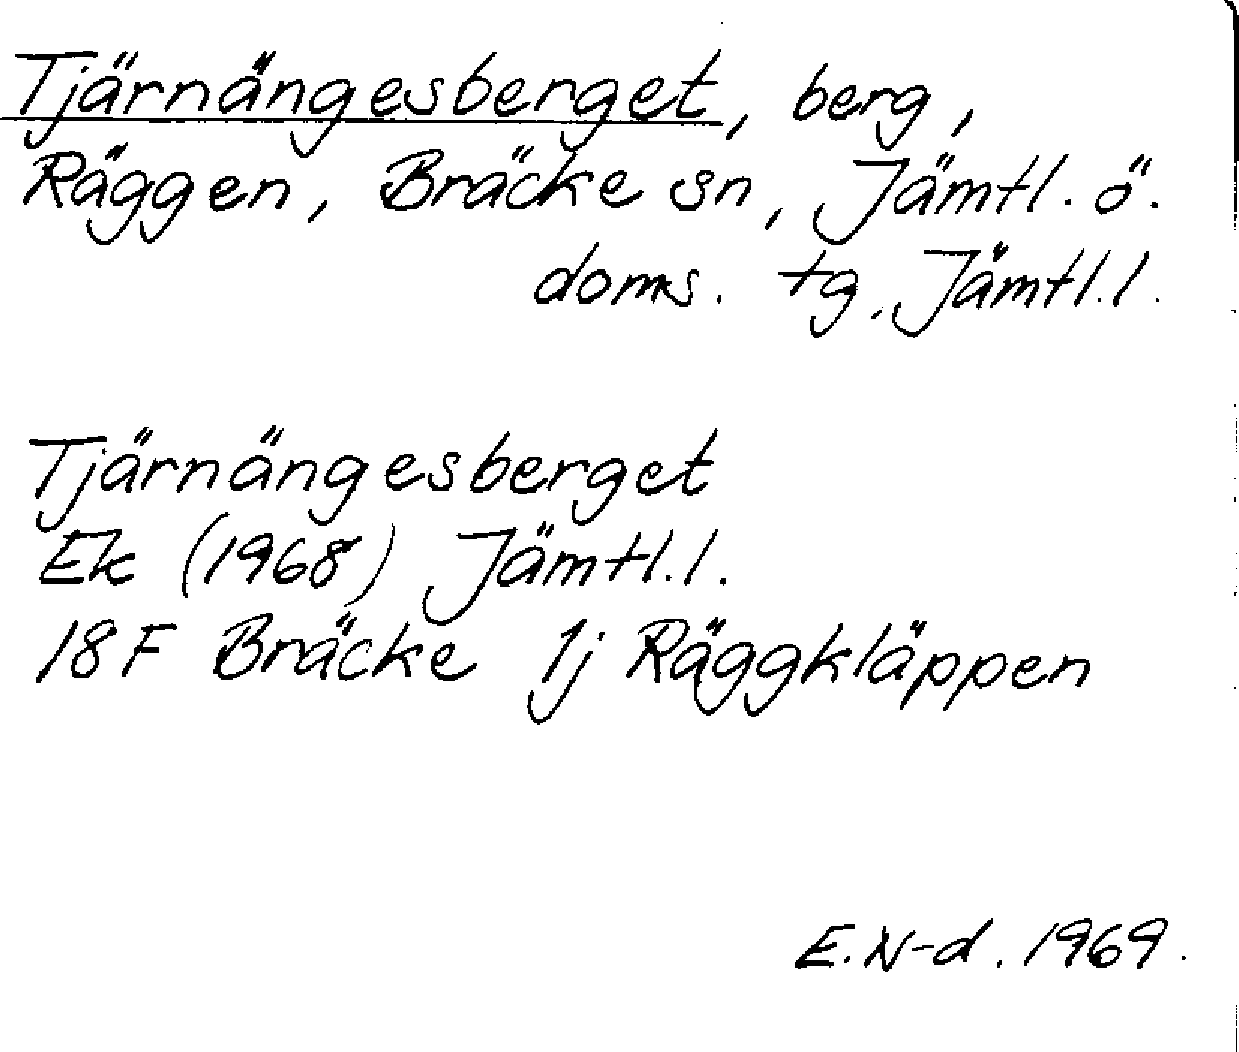 Tjärnängesberget, berg,
Räggen, Bräcke sn, Jämtl. ö.
doms. tg, Jämtl. l.
Tjärnängesberget
Ek (1968) Jämtl. l.
18F Bräcke 1j Räggkläppen
E. N-d. 1969.